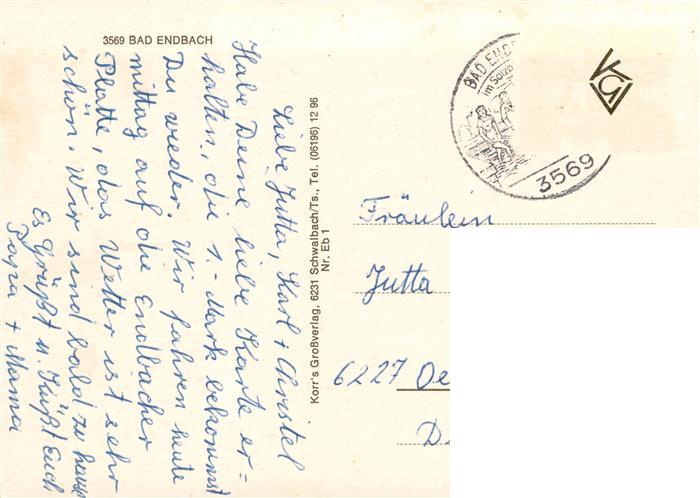 3569 BAD ENDBACH
Liebe Jutta, Karl + Christel
Habe Deine liebe Karte er=
halten, die 1.- Mark bekommst
Du wieder. Wir fahren heute
mittag auf die Endbacher
Platte, das Wetter ist sehr
schön. Wir sind bald zu hause
Es Grüßt u. Küßt Euch
Papa + Mama
Korr's Großverlag, 6231 Schwalbach/Ts., Tel. (06196) 12 96
Nr. Eb 1
BAD ENDB
im Salzb
3569
KGV
Fräulein
Jutta
6227 Oe
D.